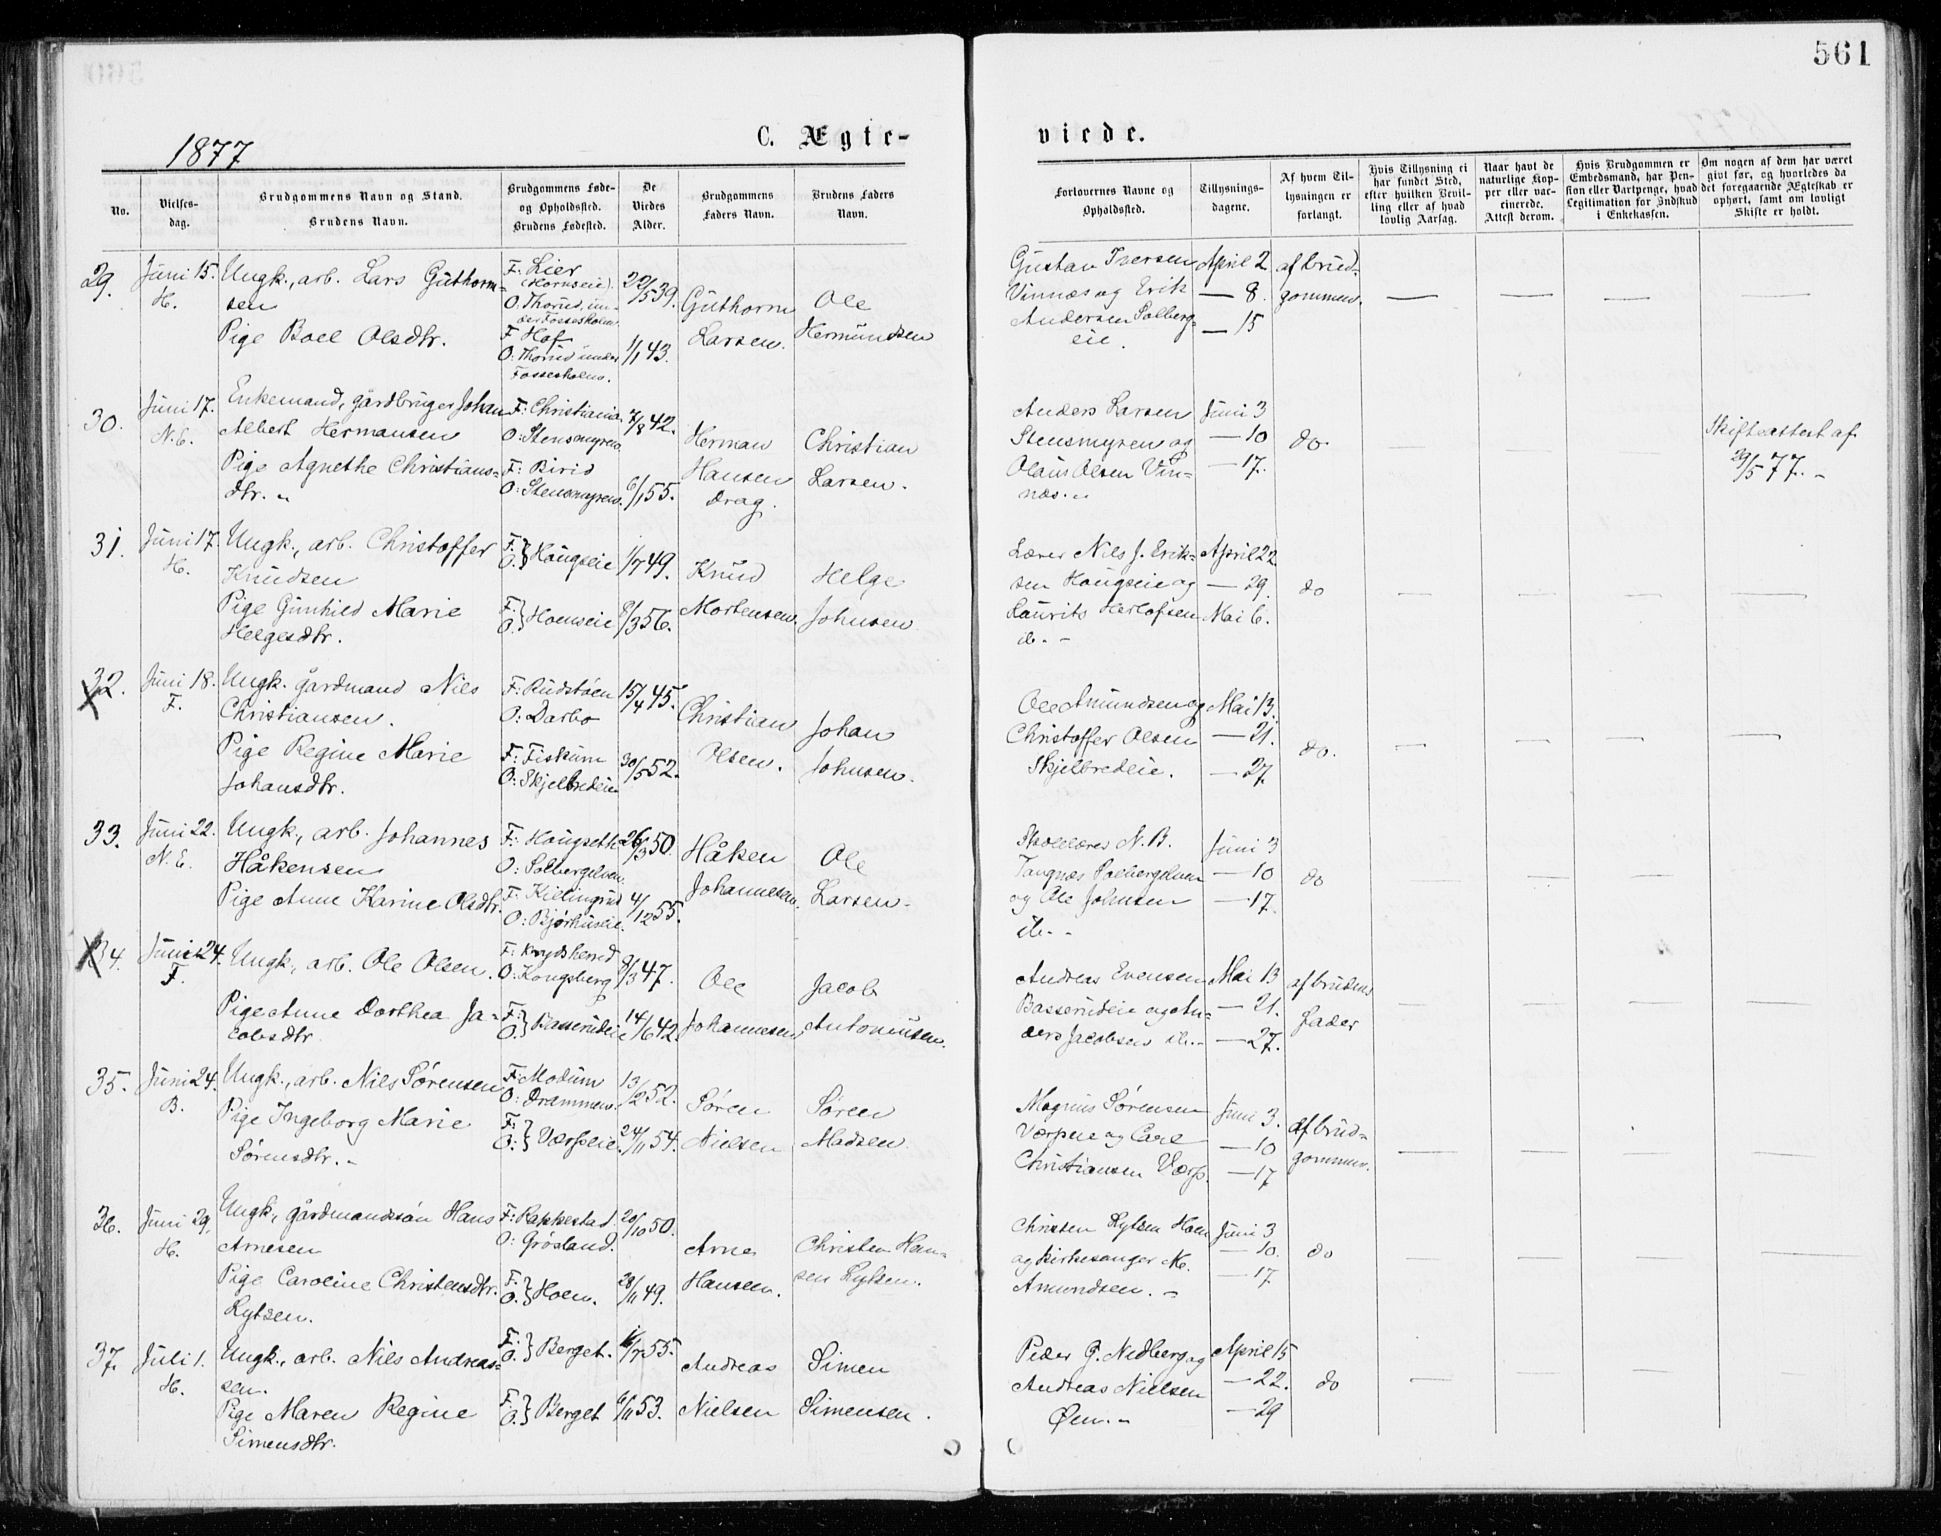 561
1877
C. Ægte-
viede.
No.
Vielses-
dag.
Brudgommens Navn og Stand.
Brudens Navn.
Brudgommens Føde-
og Opholdssted.
Brudens Fødested.
De
Viedes
Alder.
Brudgommens
Faders Navn.
Brudens Faders
Navn.
Forlovernes Navne og
Opholdssted.
Tillysnings-
dagene.
Af hvem Til-
lysningen er
forlangt.
Hvis Tillysning ei
har fundet Sted,
efter hvilken Bevil-
ling eller af hvad
lovlig Aarsag.
Naar havt de
naturlige Kop-
per eller vac-
cinerede.
Attest derom.
Hvis Brudgommen er
Embedsmand, har Pen-
sion eller Vartpenge, hvad
Legitimation for Indskud
i Enkekassen.
Om nogen af dem har været
givt før, og hvorledes da
det foregaaende Ægteskab er
ophørt, samt om lovligt
Skifte er holdt.
29.
Juni 15.
H.
Ungk., arb. Lars Guthorm-
sen
Pige Boel Olsdtr.
F: Lier
(Hornseie).
O: Thorud, un-
der Fossesholm.
F Hof
O: Thorud under
Fossesholm.
22/5 39.
1/1 43.
Guthorm
Larsen.
Ole
Hermundsen
Gustav Iversen
Vinnæs og Erik
Andersen Solberg-
eie.
April 2
— 8.
— 15
af brud-
gommen.
30.
Juni 17.
N.E.
Enkemand, gårdbruger Johan
Albert Hermansen
Pige Agnethe Christians-
dtr. -
F: Christiania.
O: Stensmyren
F: Birid
O: Stensmyren.
/8 42.
6/1 55.
Herman
Hansen
Drag.
Christian
Larsen.
Anders Larsen
Stensmyren og
Olaus Olsen Vin-
næs. -
Juni 3
— 10
— 17.
do
Skifteattest af
29/5 77. -
31.
Juni 17.
H.
Ungk., arb. Christoffer
Knudsen
Pige Gunhild Marie
Helgesdtr.
F:
O: } Hougseie
F:
O: } Hoenseie
1/7 49.
8/3 56.
Knud
Mortensen.
Helge
Johnsen
Lærer Nils J. Erik-
sen Hougseie og
Laurits Herlofsen
ib. -
April 22
— 29.
Mai 6.
do
32.
Juni 18.
F.
Ungk. gårdmand Nils
Christiansen.
Pige Regine Marie
Johansdtr.
F: Rudstøen
O: Darbo
F: Fiskum
O: Skjelbredeie
15/4 45.
30/5 52.
Christian
Olsen.
Johan
Johnsen.
Ole Amundsen og
Christoffer Olsen
Skjelbredeie.
Mai 13.
— 21.
— 27.
do.
33.
Juni 22.
N.E.
Ungk., arb. Johannes
Håkensen
Pige Anne Karine Olsdtr.
F: Hougseth
O: Solbergelven.
F: Killingrud
O: Bjørhuseie.
26/3 50
4/12 55.
Håken
Johannesen.
Ole
Larsen.
Skolelærer N. B.
Tangnæs Solbergelven
og Ole Johnsen
ib. -
Juni 3
— 10
— 17.
do
34.
Juni 24.
F.
Ungk., arb. Ole Olsen.
Pige Anne Dorthea Ja-
cobsdtr
F: Krydsherred
O: Kongsberg
F:
O: } Basserudeie
8/3 47.
14/6 42.
Ole
Johannesen
Jacob
Antoniusen.
Andreas Evensen
Basserudeie og An-
ders Jacobsen ib. -
Mai 13
— 21.
— 27.
af brudens
fader
35.
Juni 24.
B.
Ungk., arb. Nils Sørensen
Pige Ingeborg Marie
Sørensdtr. -
F: Modum
O: Drammen.
F:
O: } Værpseie.
13/2 52.
24/11 54.
Søren
Nielsen
Søren
Madsen.
Magnus Sørensen
Værpeie og Carl
Christiansen Værp.
Juni 3.
— 10
— 17
af brud-
gommen.
36.
Juni 29.
H.
Ungk., gårdmandssøn Hans
Arnesen
Pige Caroline Christensdtr.
Lytsen.
F: Rakkestad.
O: Grøsland.
F:
O: } Hoen.
20/10 50.
28/11 49.
Arne
Hansen.
Christen Han-
sen Lytsen.
Christen Lytsen Hoen
og kirkesanger M.
Amundsen. -
Juni 3
— 10.
— 17
do
37.
Juli 1.
H.
Ungk., arb. Nils Andreas-
sen.
Pige Maren Regine
Simensdtr.
F:
O: } Berget.
F:
O: } Berget
/7 55.
6/11 53.
Andreas
Nielsen
Simen
Simensen.
Peder G. Nedberg og
Andreas Nielsen
Øen. -
April 15
— 22.
— 29
do